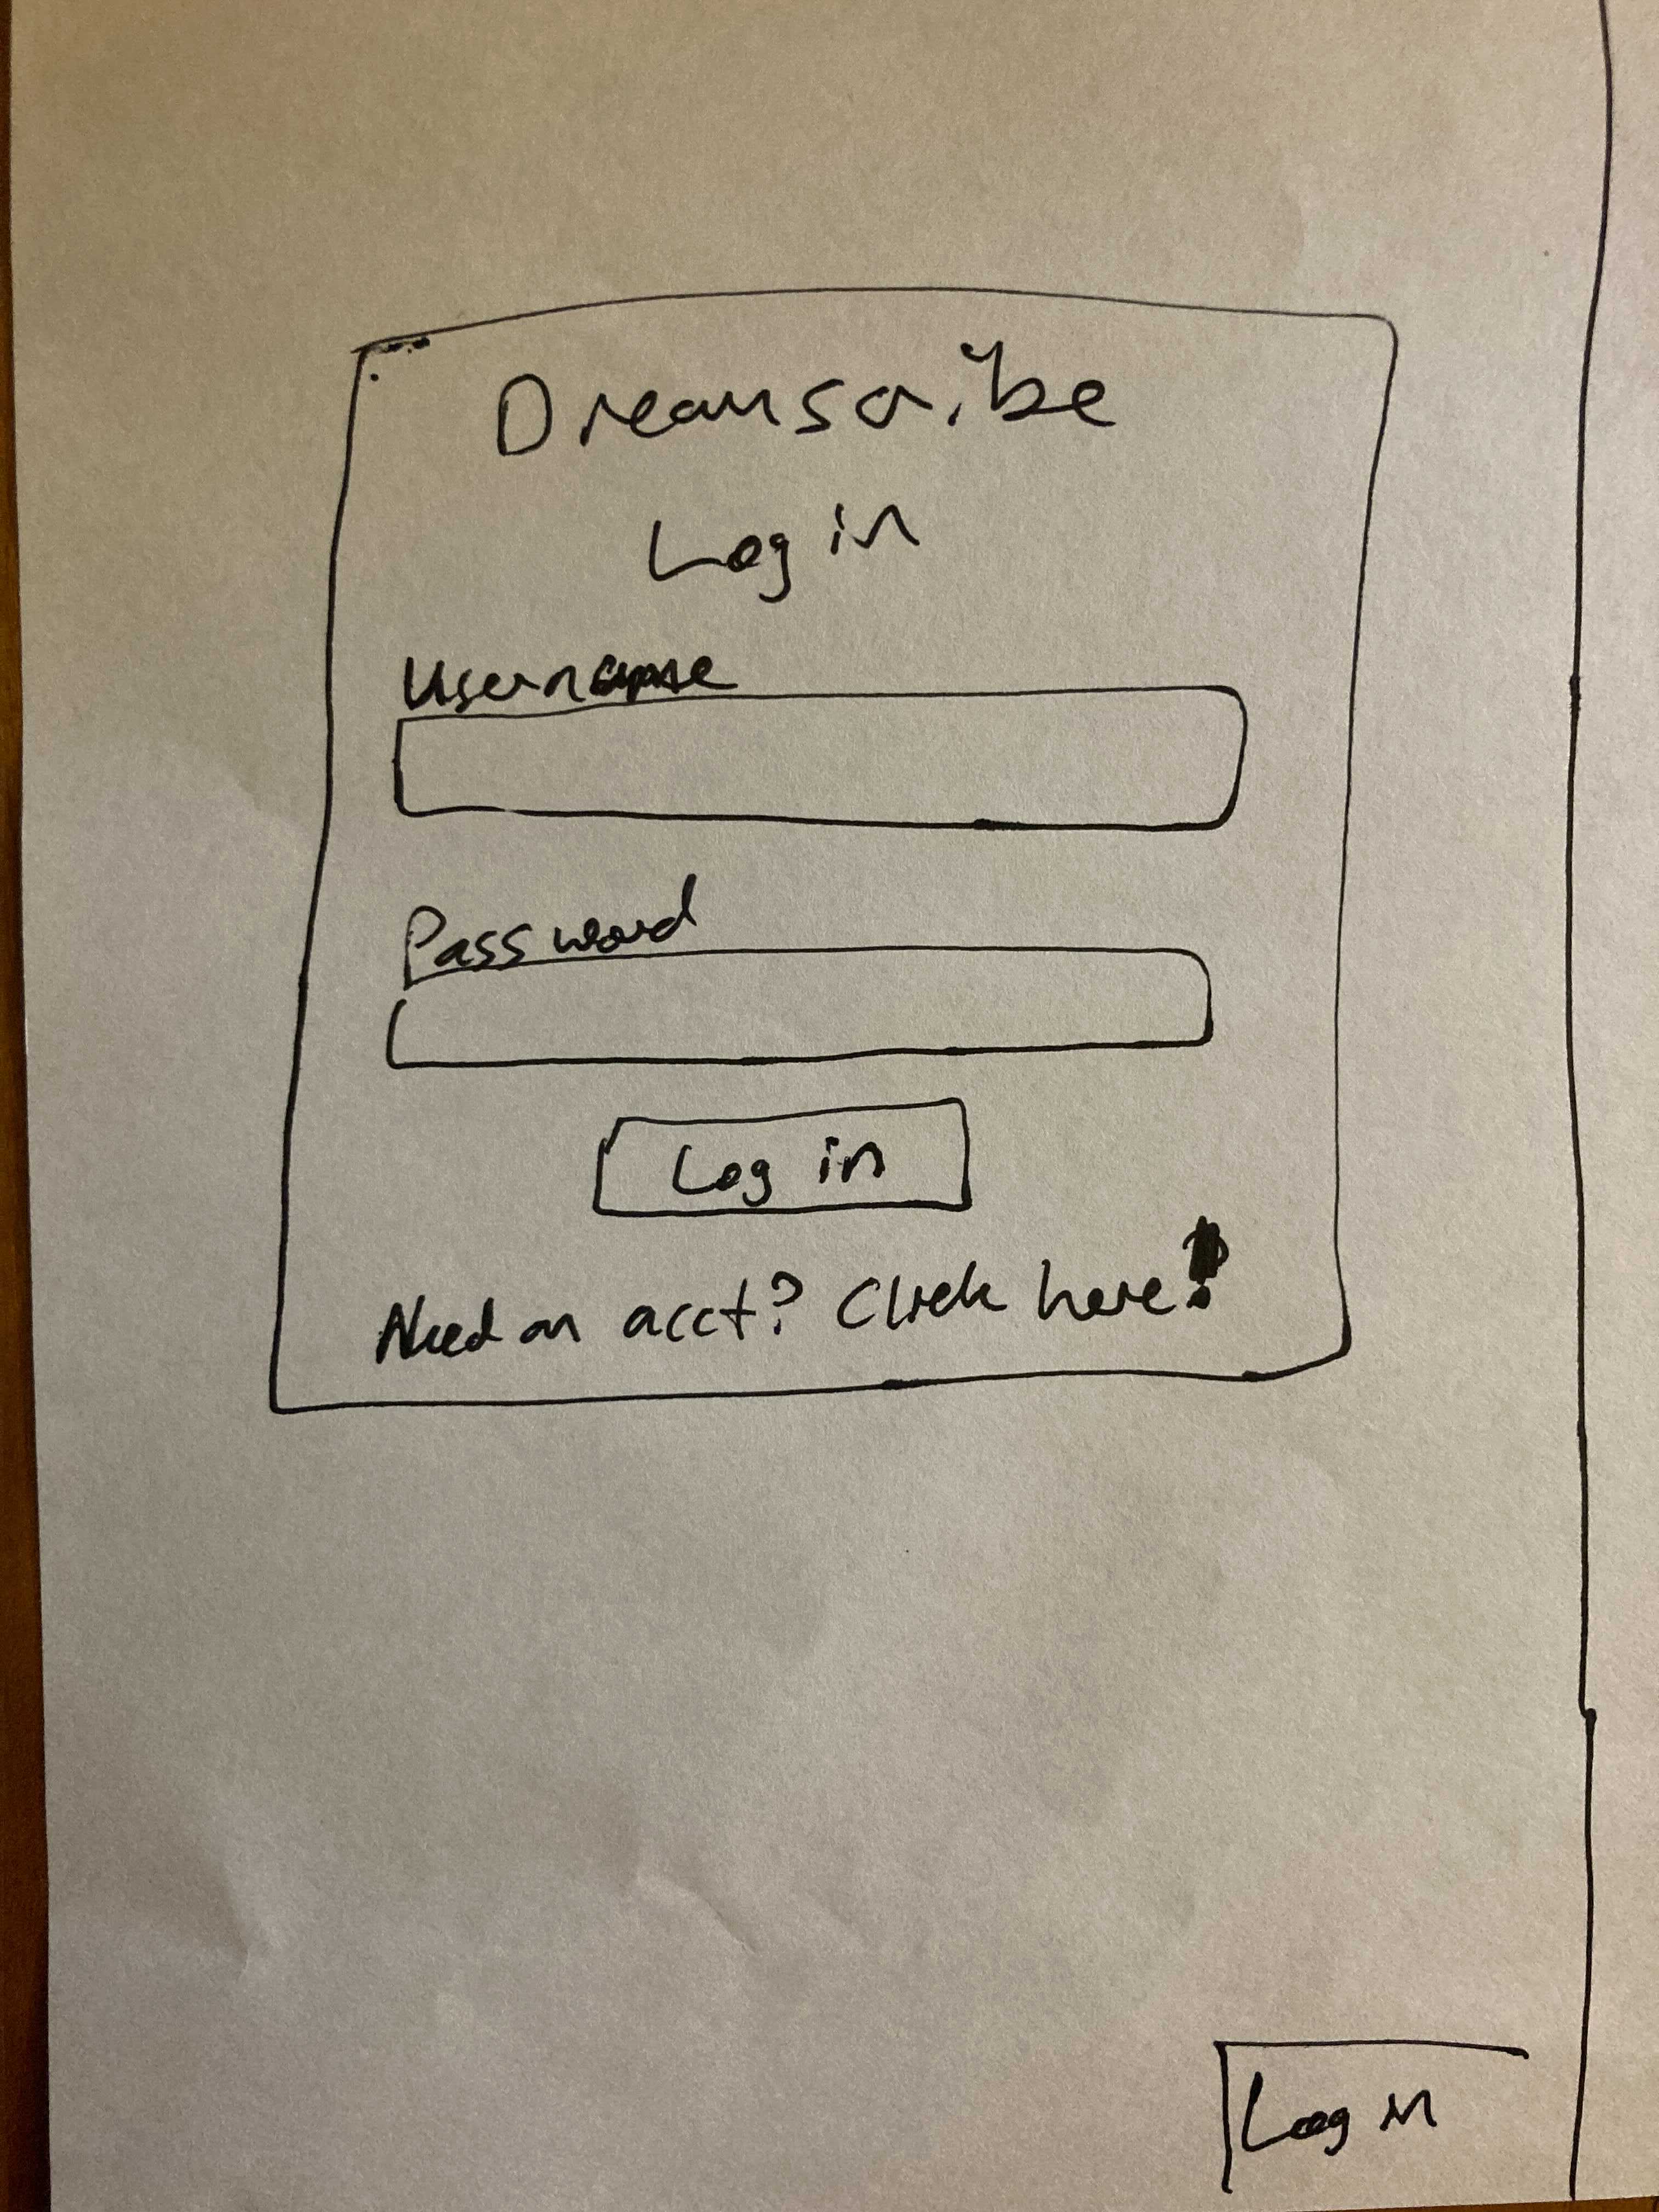 Dreamscribe
Log in
Username
Password
Log in
Need an acct? Click here!
Log in